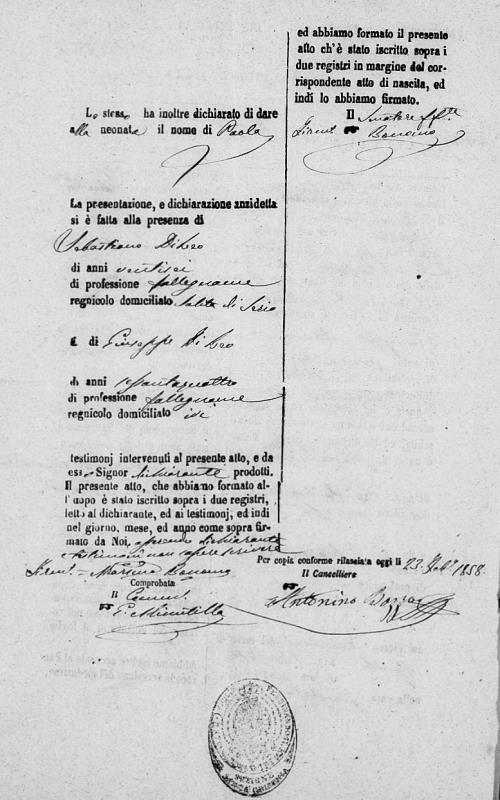 Lo stesso ha inoltre dichiarato di dare
alla neonata il nome di Paola
La presentazione, e dichiarazione anzidetta
si è fatta alla presenza di
Sebastiano Di Leo
di anni ventisei
di professione fallegname
regnicolo domiciliato
E di Giuseppe Di Leo
di anni
di professione fallegname
regnicolo domiciliato ivi
testimonj intervenuti al presente atto, e da
esso Signor dichiarante prodotti.
Il presente atto, che abbiamo formato al-
l'uopo è stato iscritto sopra i due registri,
letto al dichiarante, ed ai testimonj, ed indi
nel giorno, mese, ed anno come sopra fir-
mato da Noi, dichiarante
testimoni non sapere scrivere
Comprobata
Il
ed abbiamo formato il presente
atto ch'è stato iscritto sopra i
due registri in margine del cor-
rispondente atto di nascita, ed
indi lo abbiamo firmato.
Il Senatore ff.
Bonanno
Per copia conforme rilasciata oggi li 23 1858.
Il Cancelliere
Antonino